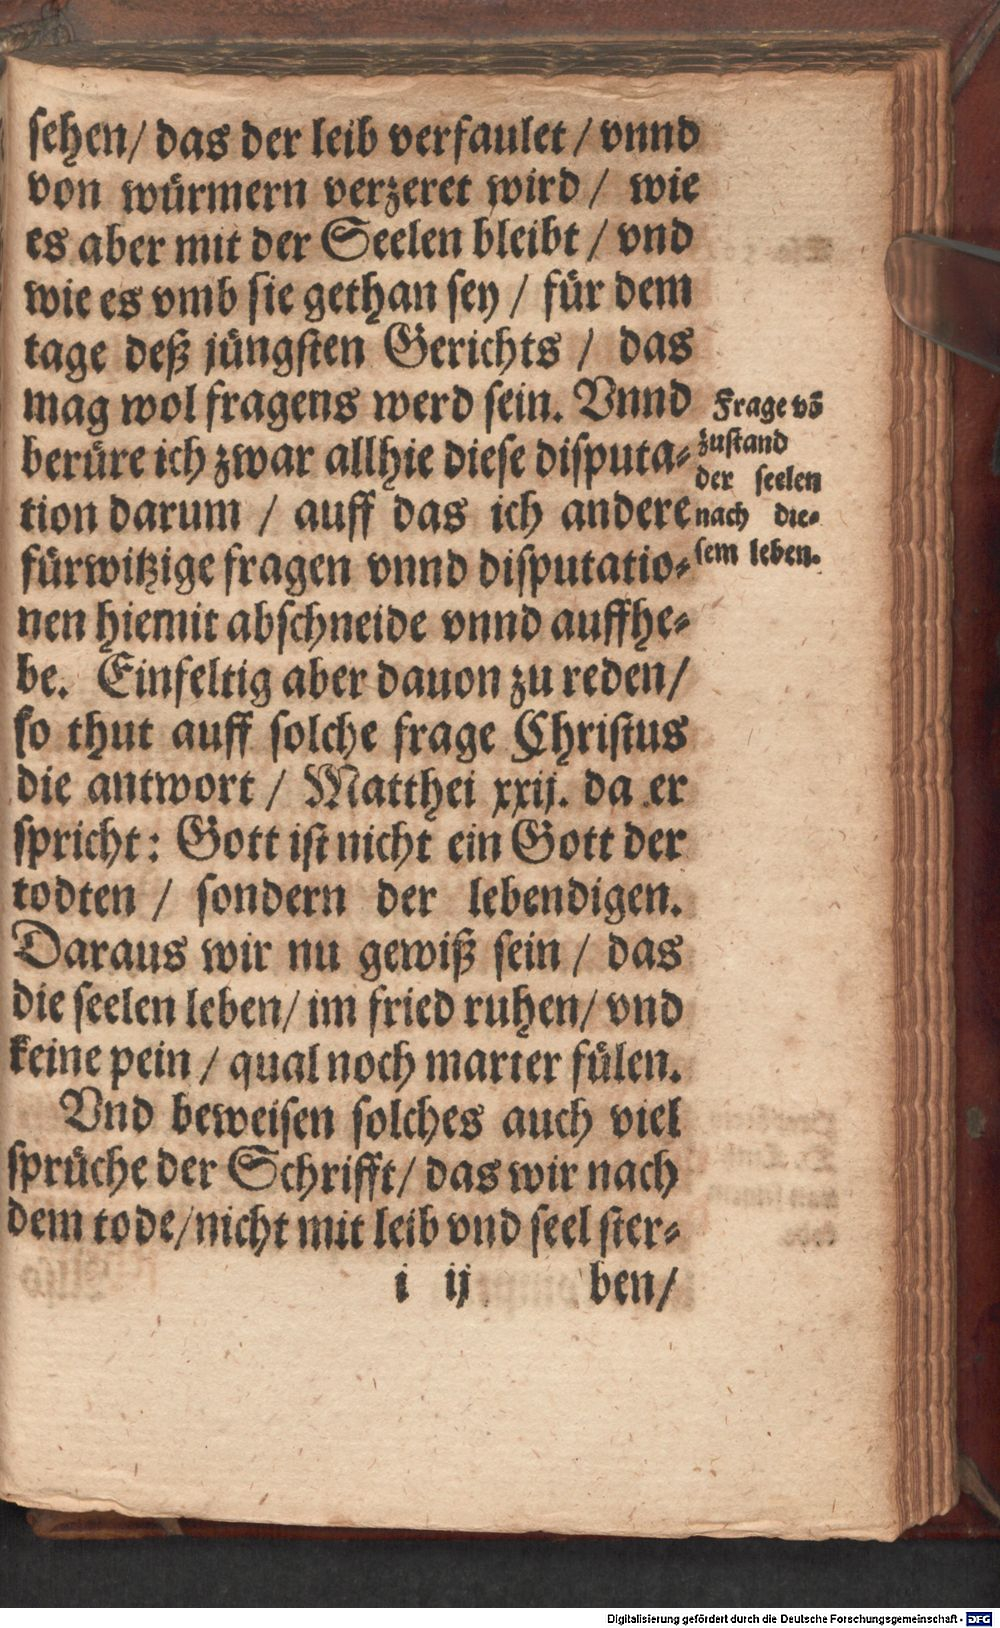 sehen/ das der leib verfaulet / vnnd
von würmern verzeret wird / wie
es aber mit der Seelen bleibt / vnd
wie es vmb sie gethan sey / für dem
tage deß jüngsten Gerichts / das
mag wol fragens werd sein. Vnnd
berüre ich zwar allhie diese disputa-
tion darum / auff das ich andere
fürwitzige fragen vnnd disputatio-
nen hiemit abschneide vnnd auffhe-
be. Einfeltig aber dauon zu reden/
so thut auff solche frage Christus
die antwort / Matthei xxij. da er
spricht: Gott ist nicht ein Gott der
todten / sondern der lebendigen.
Daraus wir nu gewiß sein / das
die seelen leben/ im fried ruhen/ vnd
keine pein / qual noch marter fülen.
Vnd beweisen solches auch viel
sprüche der Schrifft/ das wir nach
dem tode/nicht mit leib vnd seel ster-
i ij ben/
Frage võ
zustand
der seelen
nach die-
sem leben.
Digitalisierung gefördert durch die Deutsche Forschungsgemeinschaft - DFG